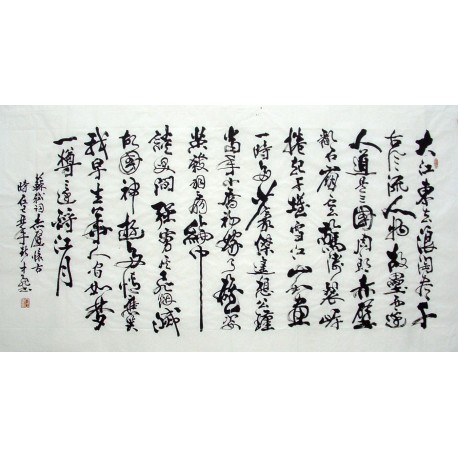 大江東去浪淘盡千
古風流人物故壘西邊
人道是三國周郎赤壁
亂石崩雲驚濤裂岸
捲起千堆雪江山如畫
一時多少豪傑遙想公瑾
當年小喬初嫁了雄姿
英發羽扇綸巾
談笑間強虜灰飛煙滅
故國神遊多情應笑
我早生華人間如夢
一樽還酹江月
蘇軾詞赤壁懷古
時在年秋